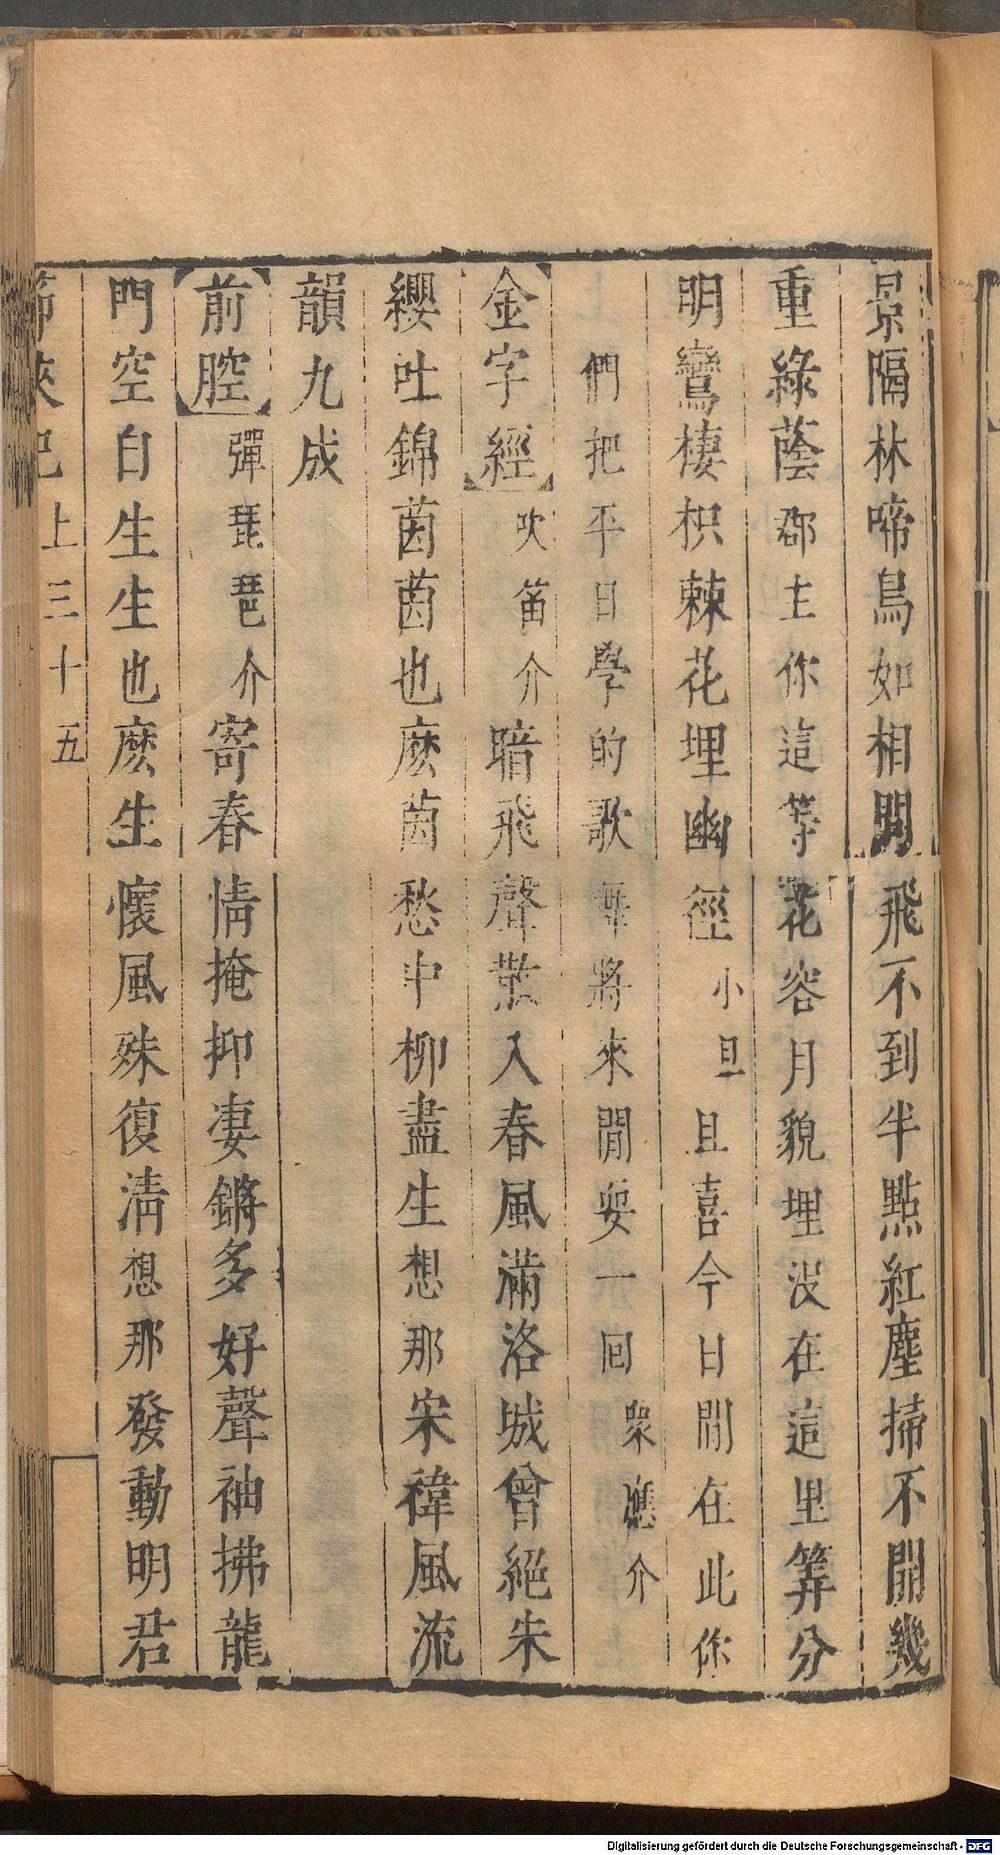 景隔林啼鳥如相問飛不到半點紅塵掃不開幾
重綠蔭郡主你這等花容月貌埋没在這里筭分
明鸞棲枳棘花埋幽徑小旦且喜今日閒在此你
們把平日學的歌舞將來閒耍一回衆應介
金字經吹笛介暗飛聲散入春風滿洛城曾絕朱
纓吐錦茵茵也麽茵愁中柳盡生想那宋禕風流
韻九成
前腔彈琵琶介寄春情掩抑凄鏘多好聲袖拂龍
門空自生生也麽生懷風殊復清想那發動明君
上三十五
Digitalisierung gefördert durch die Deutsche Forschungsgemeinschaft - DFG